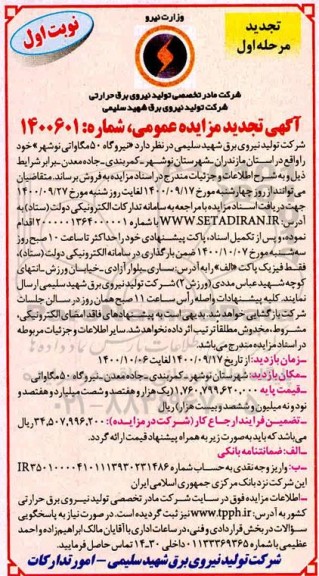 وزارت نیرو
نوبت اول
تجدید
مرحله اول
شرکت مادر تخصصی تولید نیروی برق حرارتی
شرکت تولید نیروی برق شهید سلیمی
آگهی تجدید مزایده عمومی، شماره: ۱۴۰۰۶۰۱
شرکت تولید نیروی برق شهید سلیمی در نظر دارد «نیروگاه ۵۰ مگاواتی نوشهر» خود
را واقع در استان مازندران-شهرستان نوشهر-کمربندی-جاده معدن-برابر شرایط
ذیل و به شرح اطلاعات و جزئیات مندرج در اسناد مزایده به فروش برساند. متقاضیان
می‌توانند از روز چهارشنبه مورخ ۱۴۰۰/۰۹/۱۷ لغایت روز شنبه مورخ ۱۴۰۰/۰۹/۲۷
جهت دریافت اسناد مزایده با مراجعه به سامانه تدارکات الکترونیکی دولت (ستاد) به
آدرس: WWW.SETADIRAN.IR با شماره اقدام
نموده، و پس از تکمیل اسناد، پاکت پیشنهادی خود را حداکثر تا ساعت ۱۰ صبح روز
سه‌شنبه مورخ ۱۴۰۰/۱۰/۰۷ ضمن بارگذاری در سامانه الکترونیکی دولت (ستاد)،
فقط فیزیک پاکت «الف» را به آدرس: ساری-بلوار آزادی-خیابان ورزش-انتهای
کوچه شهید عباس مددی (ورزش ۲) شرکت تولید نیروی برق شهید سلیمی ارسال
نمایند. کلیه پیشنهادات واصله رأس ساعت ۱۱ صبح همان روز در سالن جلسات
شرکت بازگشایی خواهد شد. بدیهی است به پیشنهادهای فاقد امضای الکترونیکی،
مشروط، مخدوش مطلقاً ترتیب اثر داده نخواهد شد. سایر اطلاعات و جزئیات مربوطه
در اسناد مزایده مندرج می‌باشد.
-زمان بازدید: از تاریخ ۱۴۰۰/۰۹/۱۷ لغایت ۱۴۰۰/۱۰/۰۶
-مکان بازدید: شهرستان نوشهر-کمربندی-جاده معدن-نیروگاه ۵۰ مگاواتی
-قیمت پایه: ۱,۷۶۰,۷۹۹,۶۲۰,۰۰۰ (یک هزار و هفتصد و شصت میلیارد و هفتصد و
نود و نه میلیون و ششصد و بیست هزار) ریال
-تضمین فرایند ارجاع کار (شرکت در مزایده): ۳۴,۵۰۷,۹۹۶,۲۰۰ ریال
می‌باشد که باید به صورت زیر به همراه پیشنهاد قیمت ارائه گردد.
-الف: ضمانتنامه بانکی
-ب: واریز وجه نقدی به حساب شماره
این شرکت نزد بانک مرکزی جمهوری اسلامی ایران
-اطلاعات مزایده فوق در سایت شرکت مادر تخصصی تولید نیروی برق حرارتی
کشور به آدرس: www.tpph.ir نیز ثبت گردیده است. در صورت نیاز به پاسخگویی
سؤالات در بخش قراردادی و فنی، در ساعات اداری با آقایان مالک ابراهیم‌زاده و احمد
عظیمی با شماره ۰۱۱۳۳۳۶۹۳۶۵ داخلی ۳۰-۱۴ تماس حاصل فرمایید.
شرکت تولید نیروی برق شهید سلیمی - امور تدارکات